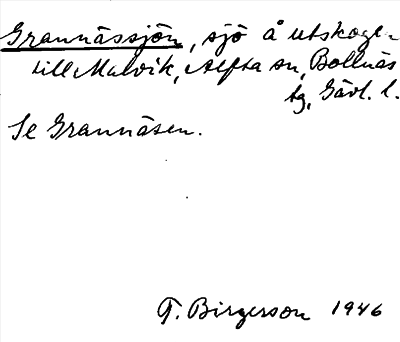 Grannässjön, sjö å utskogen
till Malvik, Alfta sn, Bollnäs
tg, Gävl. l.
Se Grannäsen.
T. Birgerson 1946